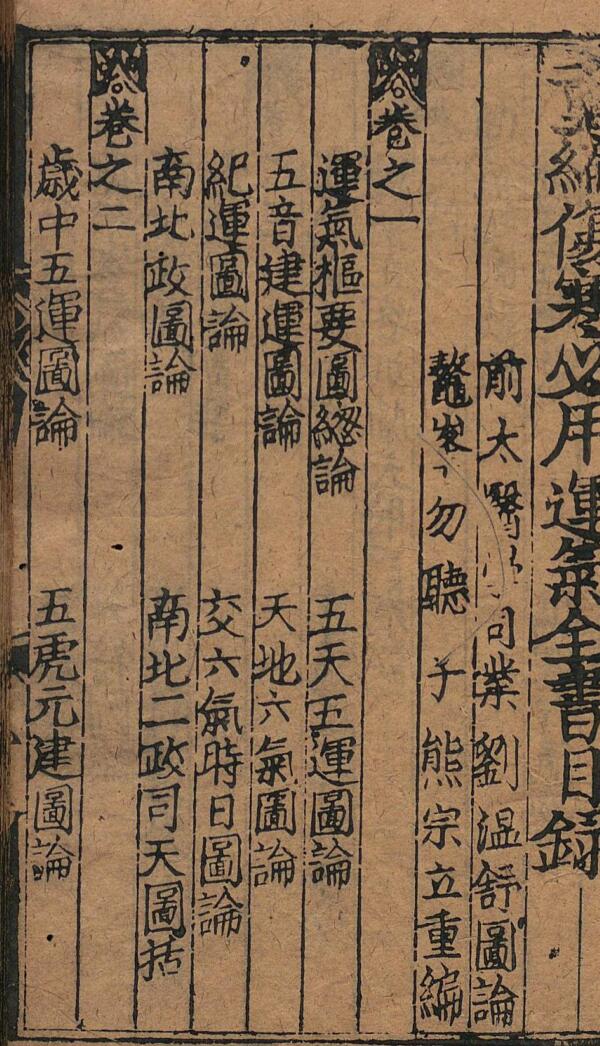 編傷寒必用運氣全書目録
前太醫學司業劉温舒圖論
鼇峯勿聽子熊宗立重編
卷之一
運氣樞要圖緫論 五天五運圖論
五音建運圖論 天地六氣圖論
紀運圖論 交六氣時日圖論
南北政圖論 南北二政司天圖括
卷之二
歳中五運圖論 五虎元建圖論